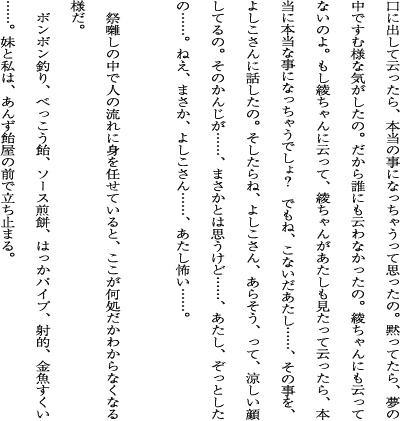 口に出して云ったら、本当の事になっちゃうって思ったの。黙ってたら、夢の
中ですむ様な気がしたの。だから誰にも云わなかったの。綾ちゃんにも云って
ないのよ。もし綾ちゃんに云って、綾ちゃんがあたしも見たって云ったら、本
当に本当な事になっちゃうでしょ？　でもね、こないだあたし……、その事を、
よしこさんに話したの。そしたらね、よしこさん、あらそう、って、涼しい顔
してるの。そのかんじが……、まさかとは思うけど……、あたし、ぞっとした
の……。ねえ、まさか、よしこさん……、あたし怖い……。
　祭囃しの中で人の流れに身を任せていると、ここが何処だかわからなくなる
様だ。
　ボンボン釣り、べっこう飴、ソース煎餅、はっかパイプ、射的、金魚すくい
……。妹と私は、あんず飴屋の前で立ち止まる。